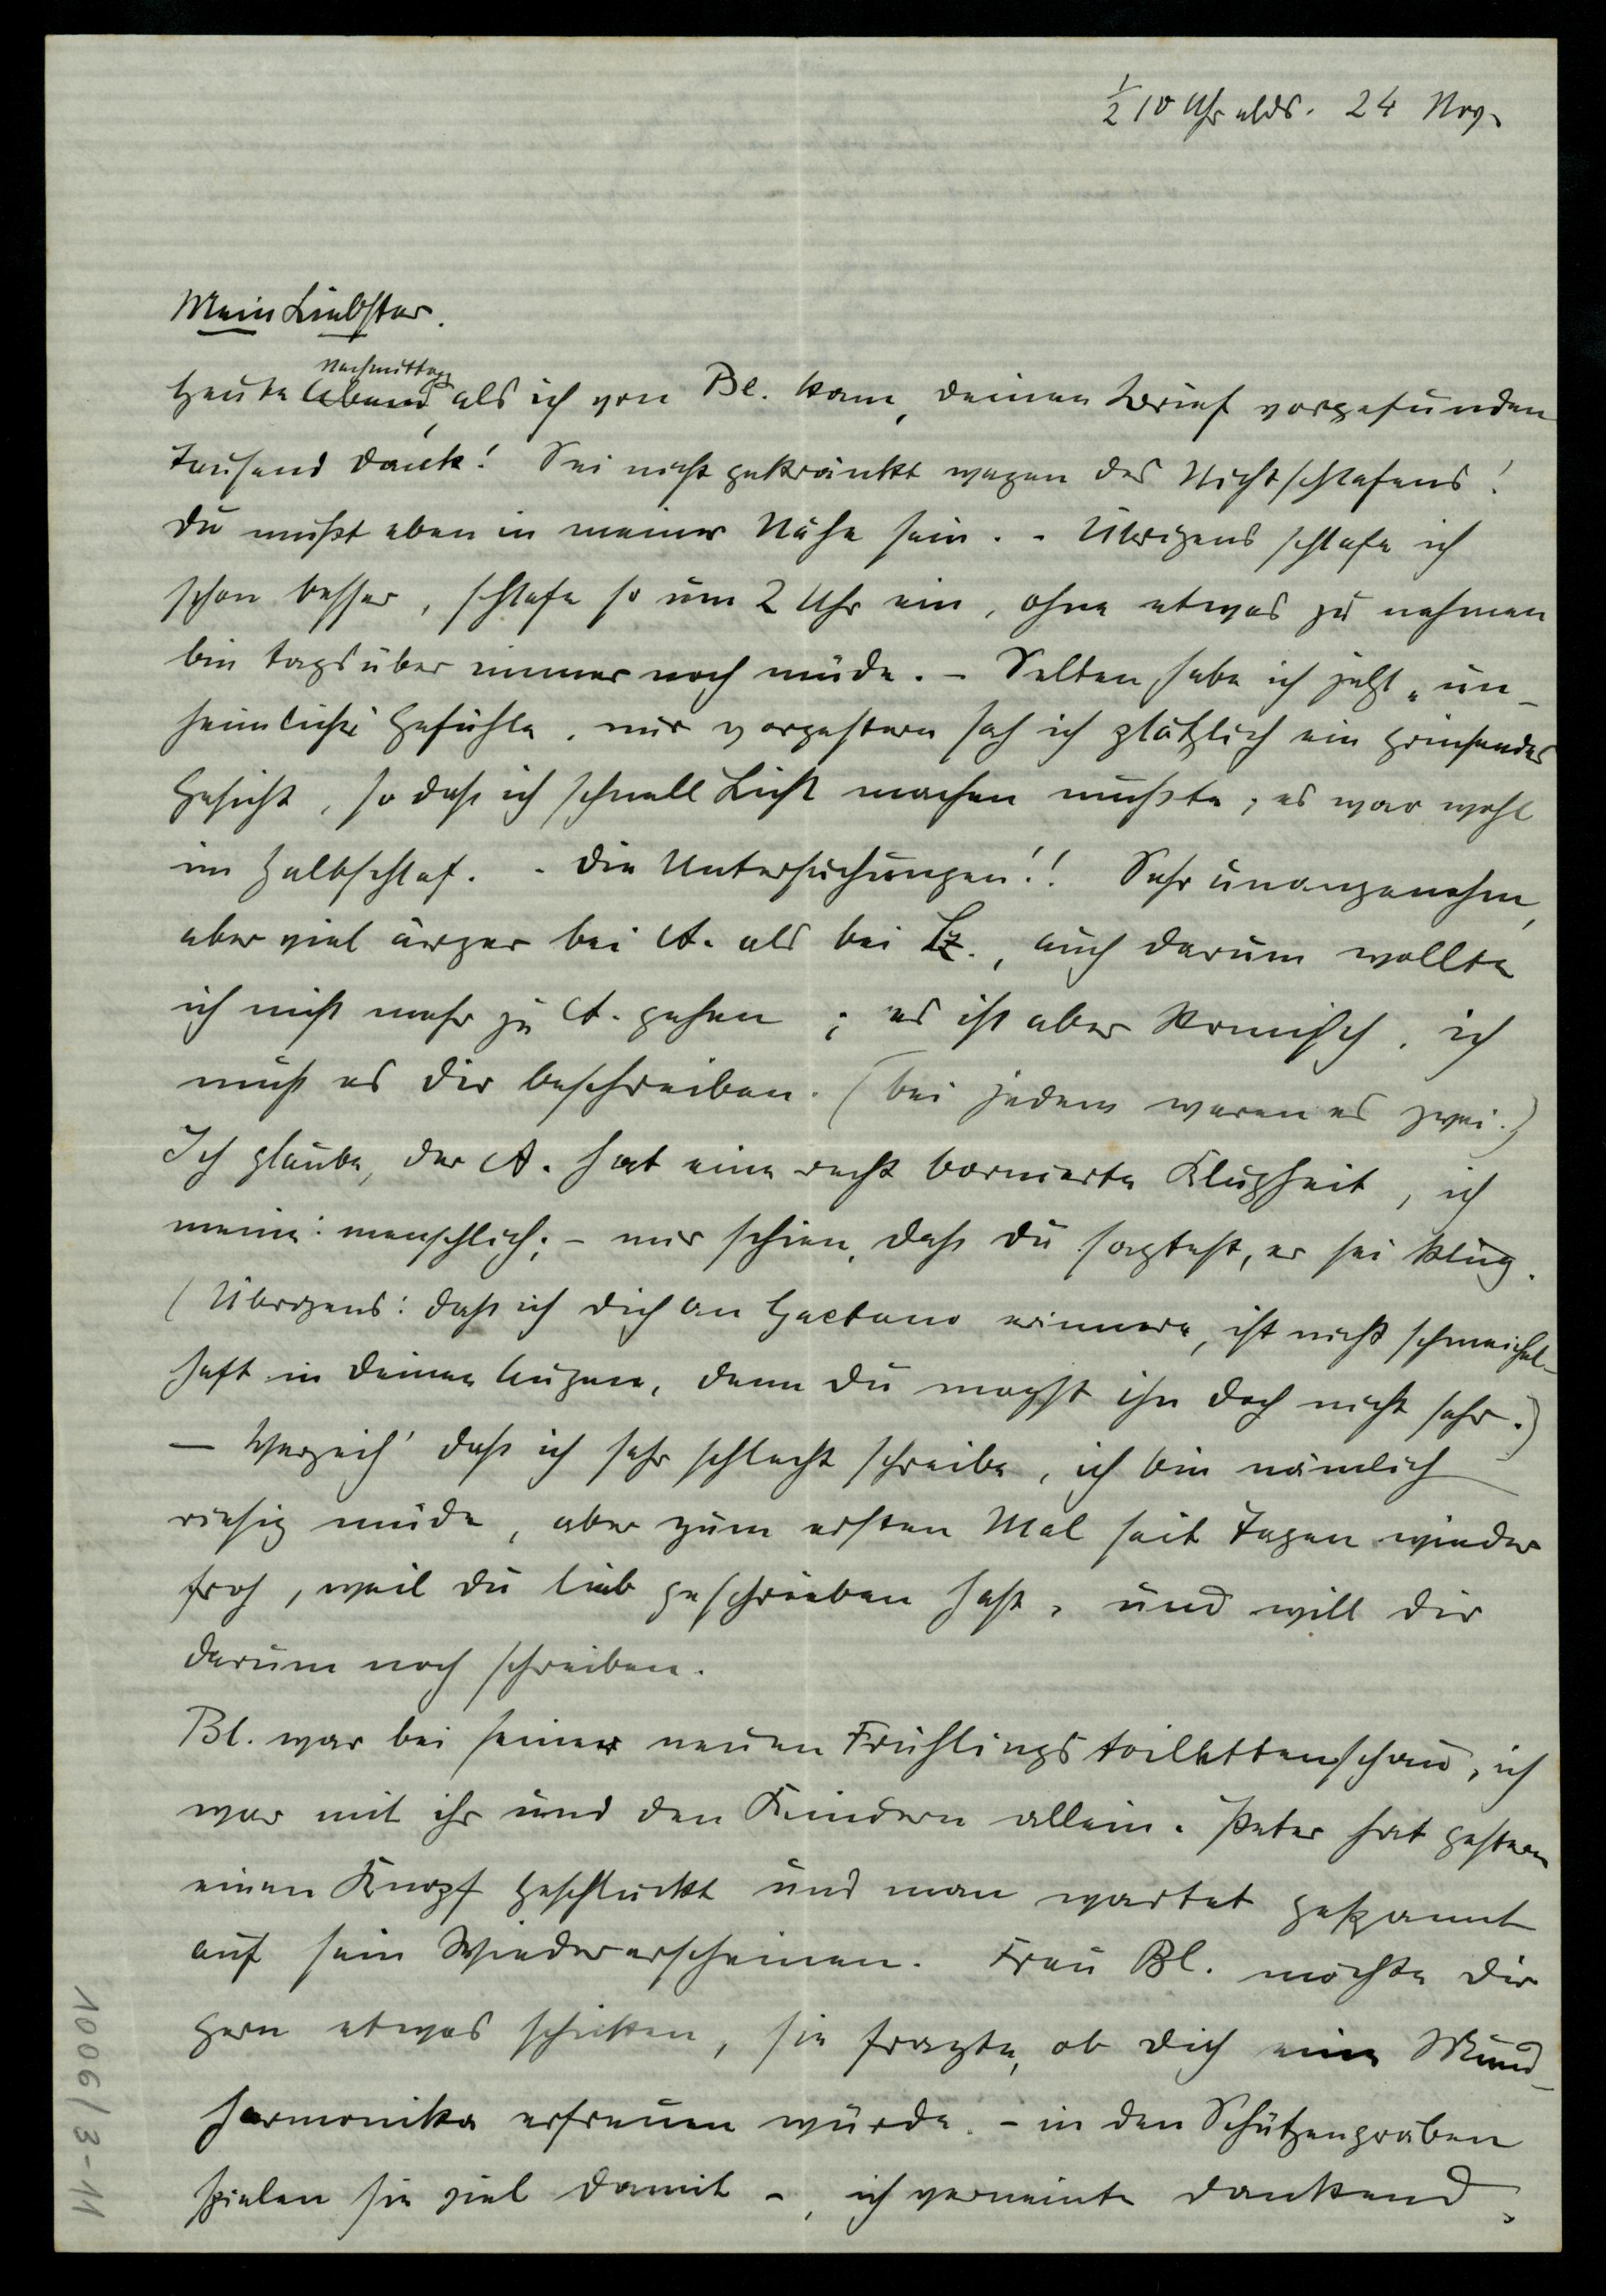 ½ 10 Uhr abds. 24 Nov.
Mein Liebster.
Nachmittag
Heute Abend, als ich von Bl. kam, deinen Brief vorgefunden
Tausend Dank! Sei nicht gekränkt wegen des Nichtschlafens!
Du mußt eben in meiner Nähe sein. - Übrigens schlafe ich
schon besser, schlafe so um 2 Uhr ein, ohne etwas zu nehmen
bin tagsüber immer noch müde. - Selten habe ich jetzt „un-
heimliche" Gefühle, nur vorgestern sah ich plötzlich ein grinsendes
Gesicht, so daß ich schnell Licht machen mußte; es war wohl
im Halbschlaf. - Die Untersuchungen!! Sehr unangenehm,
aber viel ärger bei A. als bei Lz., auch darum wollte
ich nicht mehr zu A. gehen; es ist aber komisch, ich
muß es dir beschreiben. (bei jedem waren es zwei.)
Ich glaube, der A. hat eine recht bornierte Klugheit, ich
meine: menschlich; - mir schien, daß du sagtest, er sei klug.
(Übrigens: daß ich dich an Gaetano erinnere, ist nicht schmeichel-
haft in deinen Augen, denn du magst ihn doch nicht sehr.)
- Verzeih' daß ich sehr schlecht schreibe, ich bin nämlich
riesig müde, aber zum ersten Mal seit Tagen wieder
froh, weil du lieb geschrieben hast, und will dir
darum noch schreiben.
Bl. war bei seiner neuen Frühlingstoilettenschau, ich
war mit ihr und den Kindern allein. Peter hat gestern
einen Knopf geschluckt und man wartet gespannt
auf sein Wiedererscheinen. Frau Bl. möchte dir
gern etwas schicken, sie fragte, ob dich eine Mund-
harmonika erfreuen würde. - in den Schützengräben
spielen sie viel damit -, ich verneinte dankend,
1006/3-11